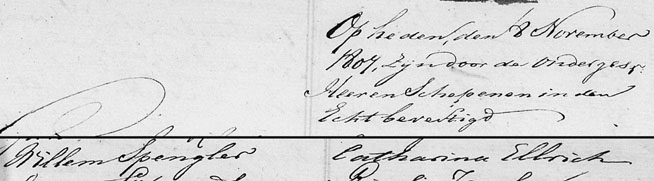 Op heden, den 8 November
1807, zyn door de Ondergesz:
Heeren Schepenen in den
Echt bevestigd
Willem Spengler Catharina Ellrich